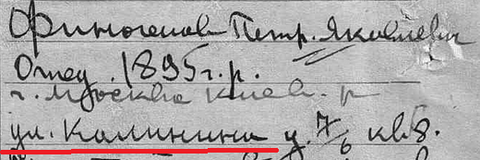 Финогенов Петр. Яковлевич
Отец. 1895 г.р.
г. Москва Киев. р
ул. Калинина д. 7/6 кв 8.